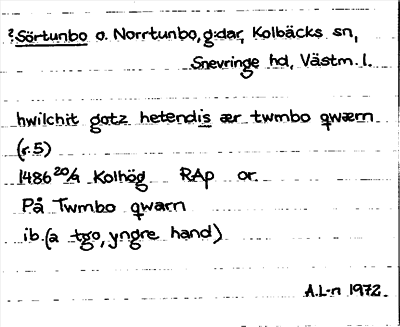 ?Sörtunbo o. Norrtunbo, g:dar, Kolbäcks sn,
Snevringe hd, Västm. l.
hwilchit gotz hetendis ær twmbo qwærn
(r. 5)
1486 20/4 Kolhög RAp or.
På Twmbo qwarn
ib. (a tgo, yngre hand)
A.L-n 1972.